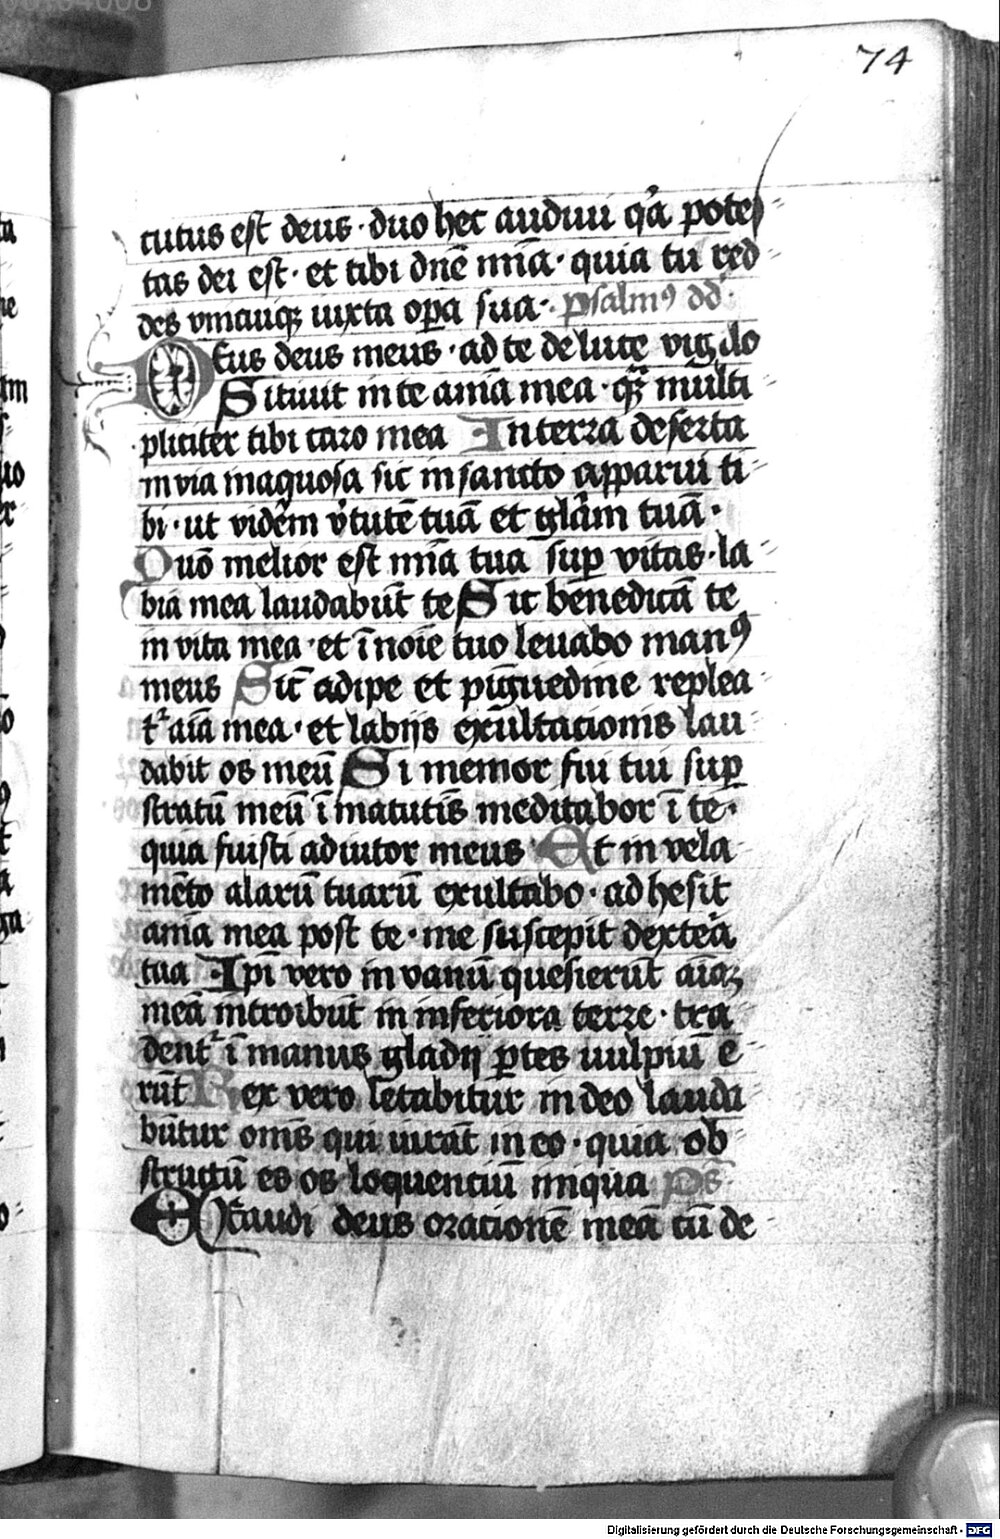 74
cutus est deus · duo hec audiui qa potes
tas dei est · et tibi dne mia · quia tu red
des vnicuiqz iuxta opa sua · psalmꝰ dd
Deus deus meus · ad te de luce vigilo
Sitiuit in te ania mea · qz multi
pliciter tibi caro mea In terra deserta
inuia inaquosa sic in sancto apparui ti
bi · ut videm vtutē tuā et gliam tuā ·
Quō melior est mia tua sup vitas · la
bia mea laudabūt te Sic benedicā te
in vita mea · et ī noīe tuo leuabo manꝰ
meus Sic adipe et pīguedine replea
t aīa mea · et labijs exultacionis lau
dabit os meū Si memor fui tui sup
stratū meū ī matutīs meditabor ī te ·
quia fuisti adiutor meus Et in vela
mēto alarū tuarū exultabo · adhesit
ania mea post te · me suscepit dextera
tua Ipi vero in vanū quesierūt aīaz
meā introibūt in inferiora terre · tra
dent ī manus gladij ptes uulpiū e
rūt Rex vero letabitur in deo lauda
būtur omīs qui iurāt in eo · quia ob
structū es os loquenciū iniqua ps
Exaudi deus oracionē meā cū de
Digitalisierung gefördert durch die Deutsche Forschungsgemeinschaft - DFG